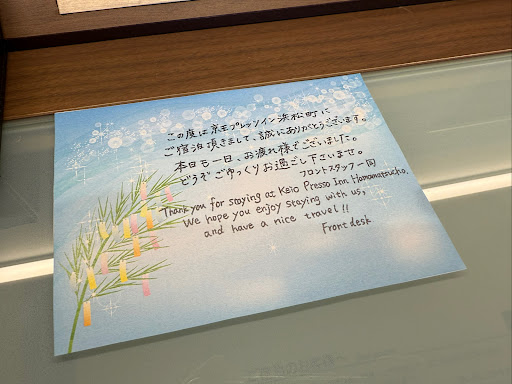 この度は京王プレッソイン浜松町に
ご宿泊頂きまして、誠にありがとうございます。
本日も一日、お疲れ様でございました。
どうぞごゆっくりお過ごし下さいませ。
フロントスタッフ一同
Thank you for staying at Keio Presso Inn Hamamatsucho.
We hope you enjoy staying with us,
and have a nice travel!!
Front desk